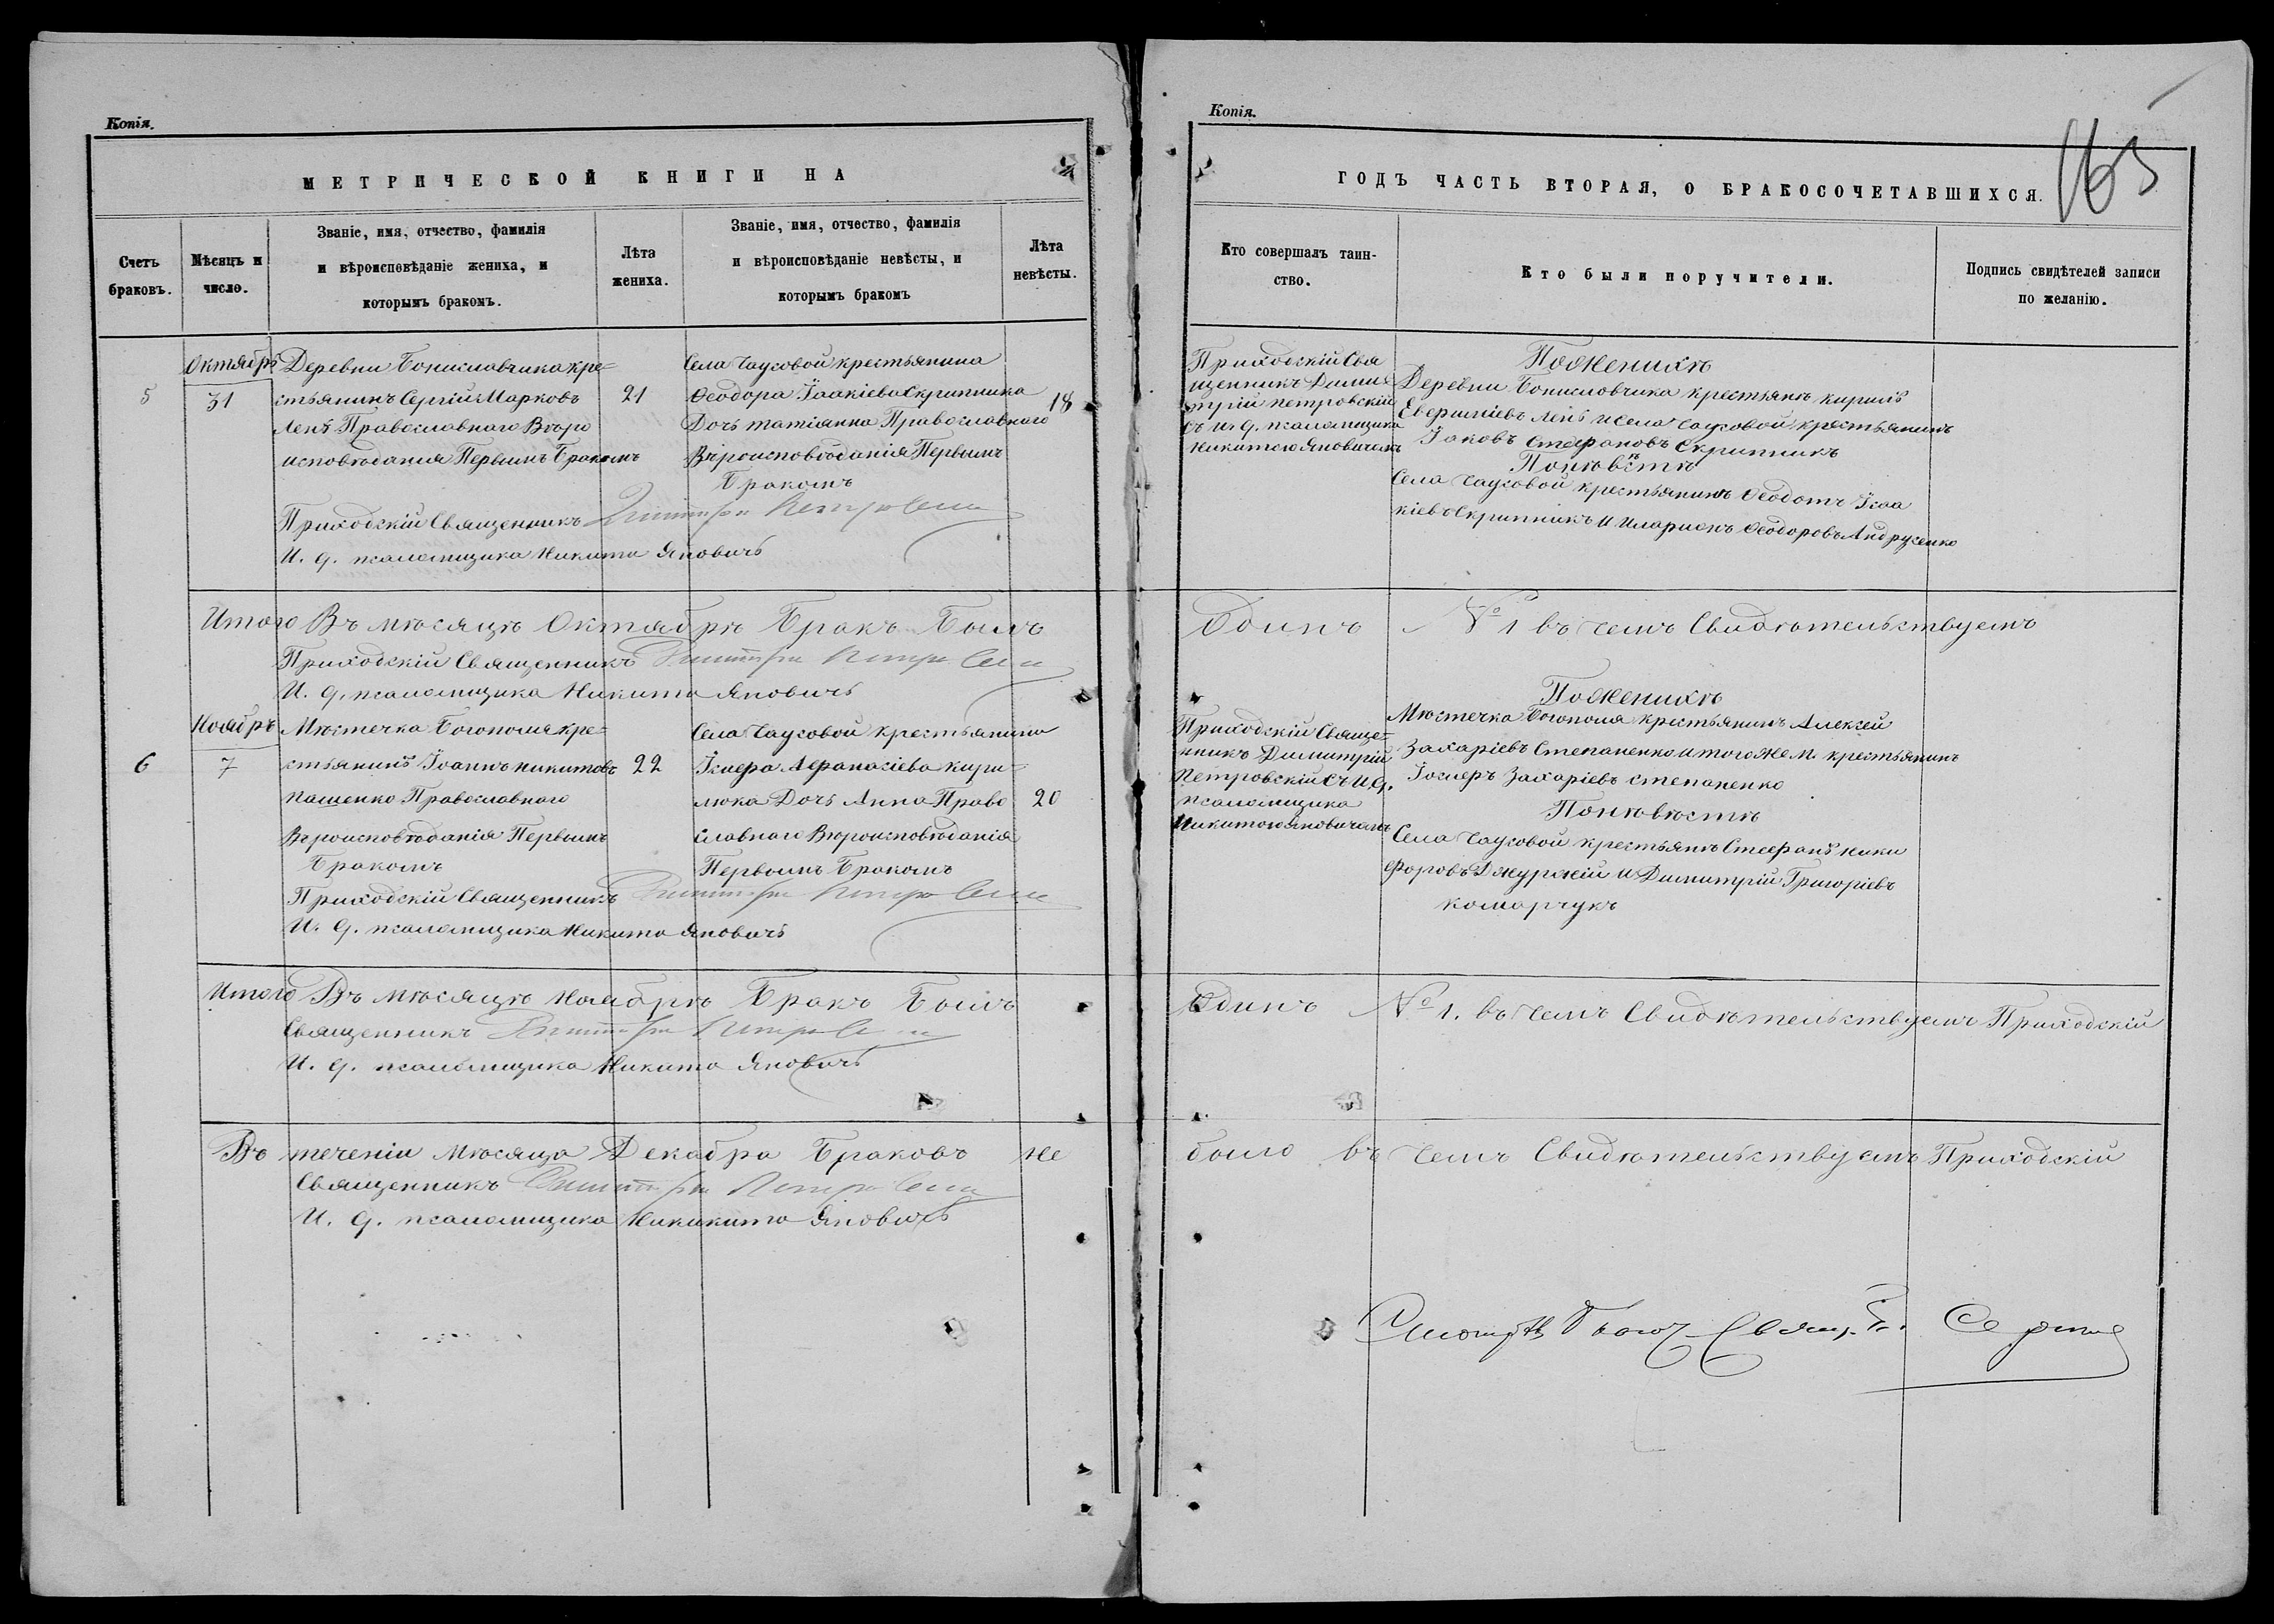 Копія.
МЕТРИЧЕСКОЙ КНИГИ НА
Счетъ браковъ.
Мѣсяцъ и число.
Званіе, имя, отчество, фамилія
и вѣроисповѣданіе жениха, и
которымъ бракомъ.
Лѣта жениха.
Званіе, имя, отчество, фамилія
и вѣроисповѣданіе невѣсты, и
которымъ бракомъ
Лѣта невѣсты.
Октябрь
5
31
Деревни Бониславчика кре=
стьянинъ Сергій Марковъ
Ленъ Православнаго Вѣро
исповѣданія Первымъ Бракомъ
21
Села Чаусовой крестьянина
Ѳеодора Іоакіева Скрипника
Дочь Татіанна Православнаго
Вѣроисповѣданія Первымъ
Бракомъ
18
Приходскій Священникъ Димитрій Петровскій
И. д. псаломщика Никита Яновичъ
Итого Въ мѣсяцѣ Октябрѣ Бракъ Былъ
Приходскій Священникъ Димитрій Петровскій
И. д. псаломщика Никита Яновичъ
Ноябрь
6
7
Мѣстечка Богополя кре=
стьянинъ Іоаннъ Никитовъ
Пащенко Православнаго
Вѣроисповѣданія Первымъ
Бракомъ
22
Села Чаусовой крестьянина
Афанасіева Кири=
люка Дочь Анна Право
славнаго Вѣроисповѣданія
Первымъ Бракомъ
20
Приходскій Священникъ Димитрій Петровскій
И. д. псаломщика Никита Яновичъ
Итого Въ мѣсяцѣ Ноябрѣ Бракъ Былъ
Священникъ Димитрій Петровскій
И. д. псаломщика Никита Яновичъ
Въ теченіи мѣсяца Декабра Браковъ не
Священникъ Димитрій Петровскій
И. д. псаломщика Никикита Яновичъ
Копія.
165
ГОДЪ ЧАСТЬ ВТОРАЯ, О БРАКОСОЧЕТАВШИХСЯ.
Кто совершалъ таин-
ство.
Кто были поручители.
Подпись свидѣтелей записи
по желанію.
Приходскій Свя
щенникъ Дими
трій Петровскій
съ И. д. псаломщика
Никитою Яновичемъ
По Женихѣ
Деревни Бонисловчика крестьянъ Кирилъ
Ленъ и Села Чаусовой крестьянинъ
Іаковъ Стефановъ Скрипникъ
По невѣстѣ
Села Чаусовой крестьянинъ Ѳеодотъ Ісаа
кіевъ Скрипникъ и Иларионъ Ѳеодоровъ Андрусенко
Одинъ № 1 въ чемъ Свидѣтельствуемъ
Приходскій Свяще=
нникъ Димитрій
Петровскій Съ И. д.
псаломщика
Никитою Яновичемъ
По Женихѣ
Мѣстечка Богополя крестьянинъ Алексей
Захаріевъ Степаненко и того же М. крестьянинъ
Захаріевъ Степаненко
По невѣстѣ
Села Чаусовой крестьянъ Стефанъ Ники
форовъ Джуржій и Димитрій Григоріевъ
Комарчукъ
Одинъ № 1. въ чемъ Свидѣтельствуемъ Приходскій
было въ чемъ Свидѣтельствуемъ Приходскій